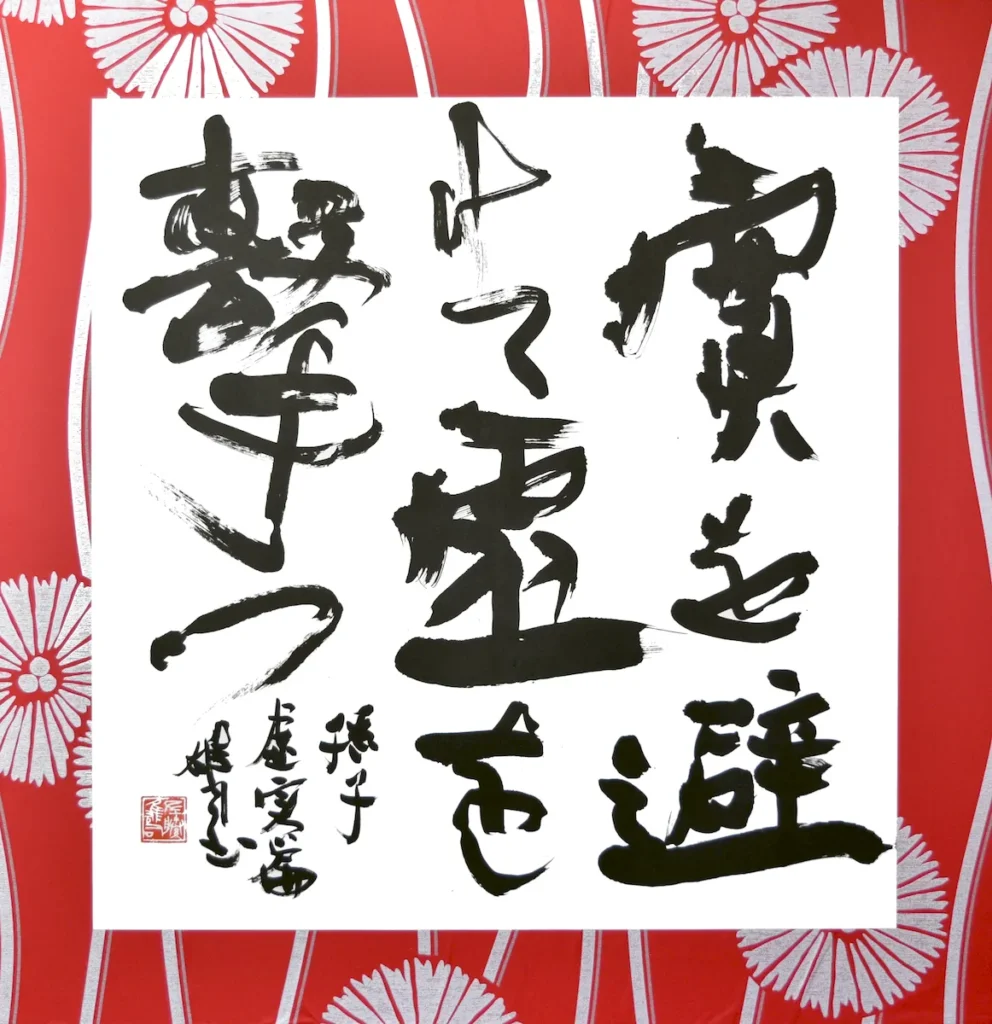 實を避
けて虚を
擊つ
孫子
虚実篇